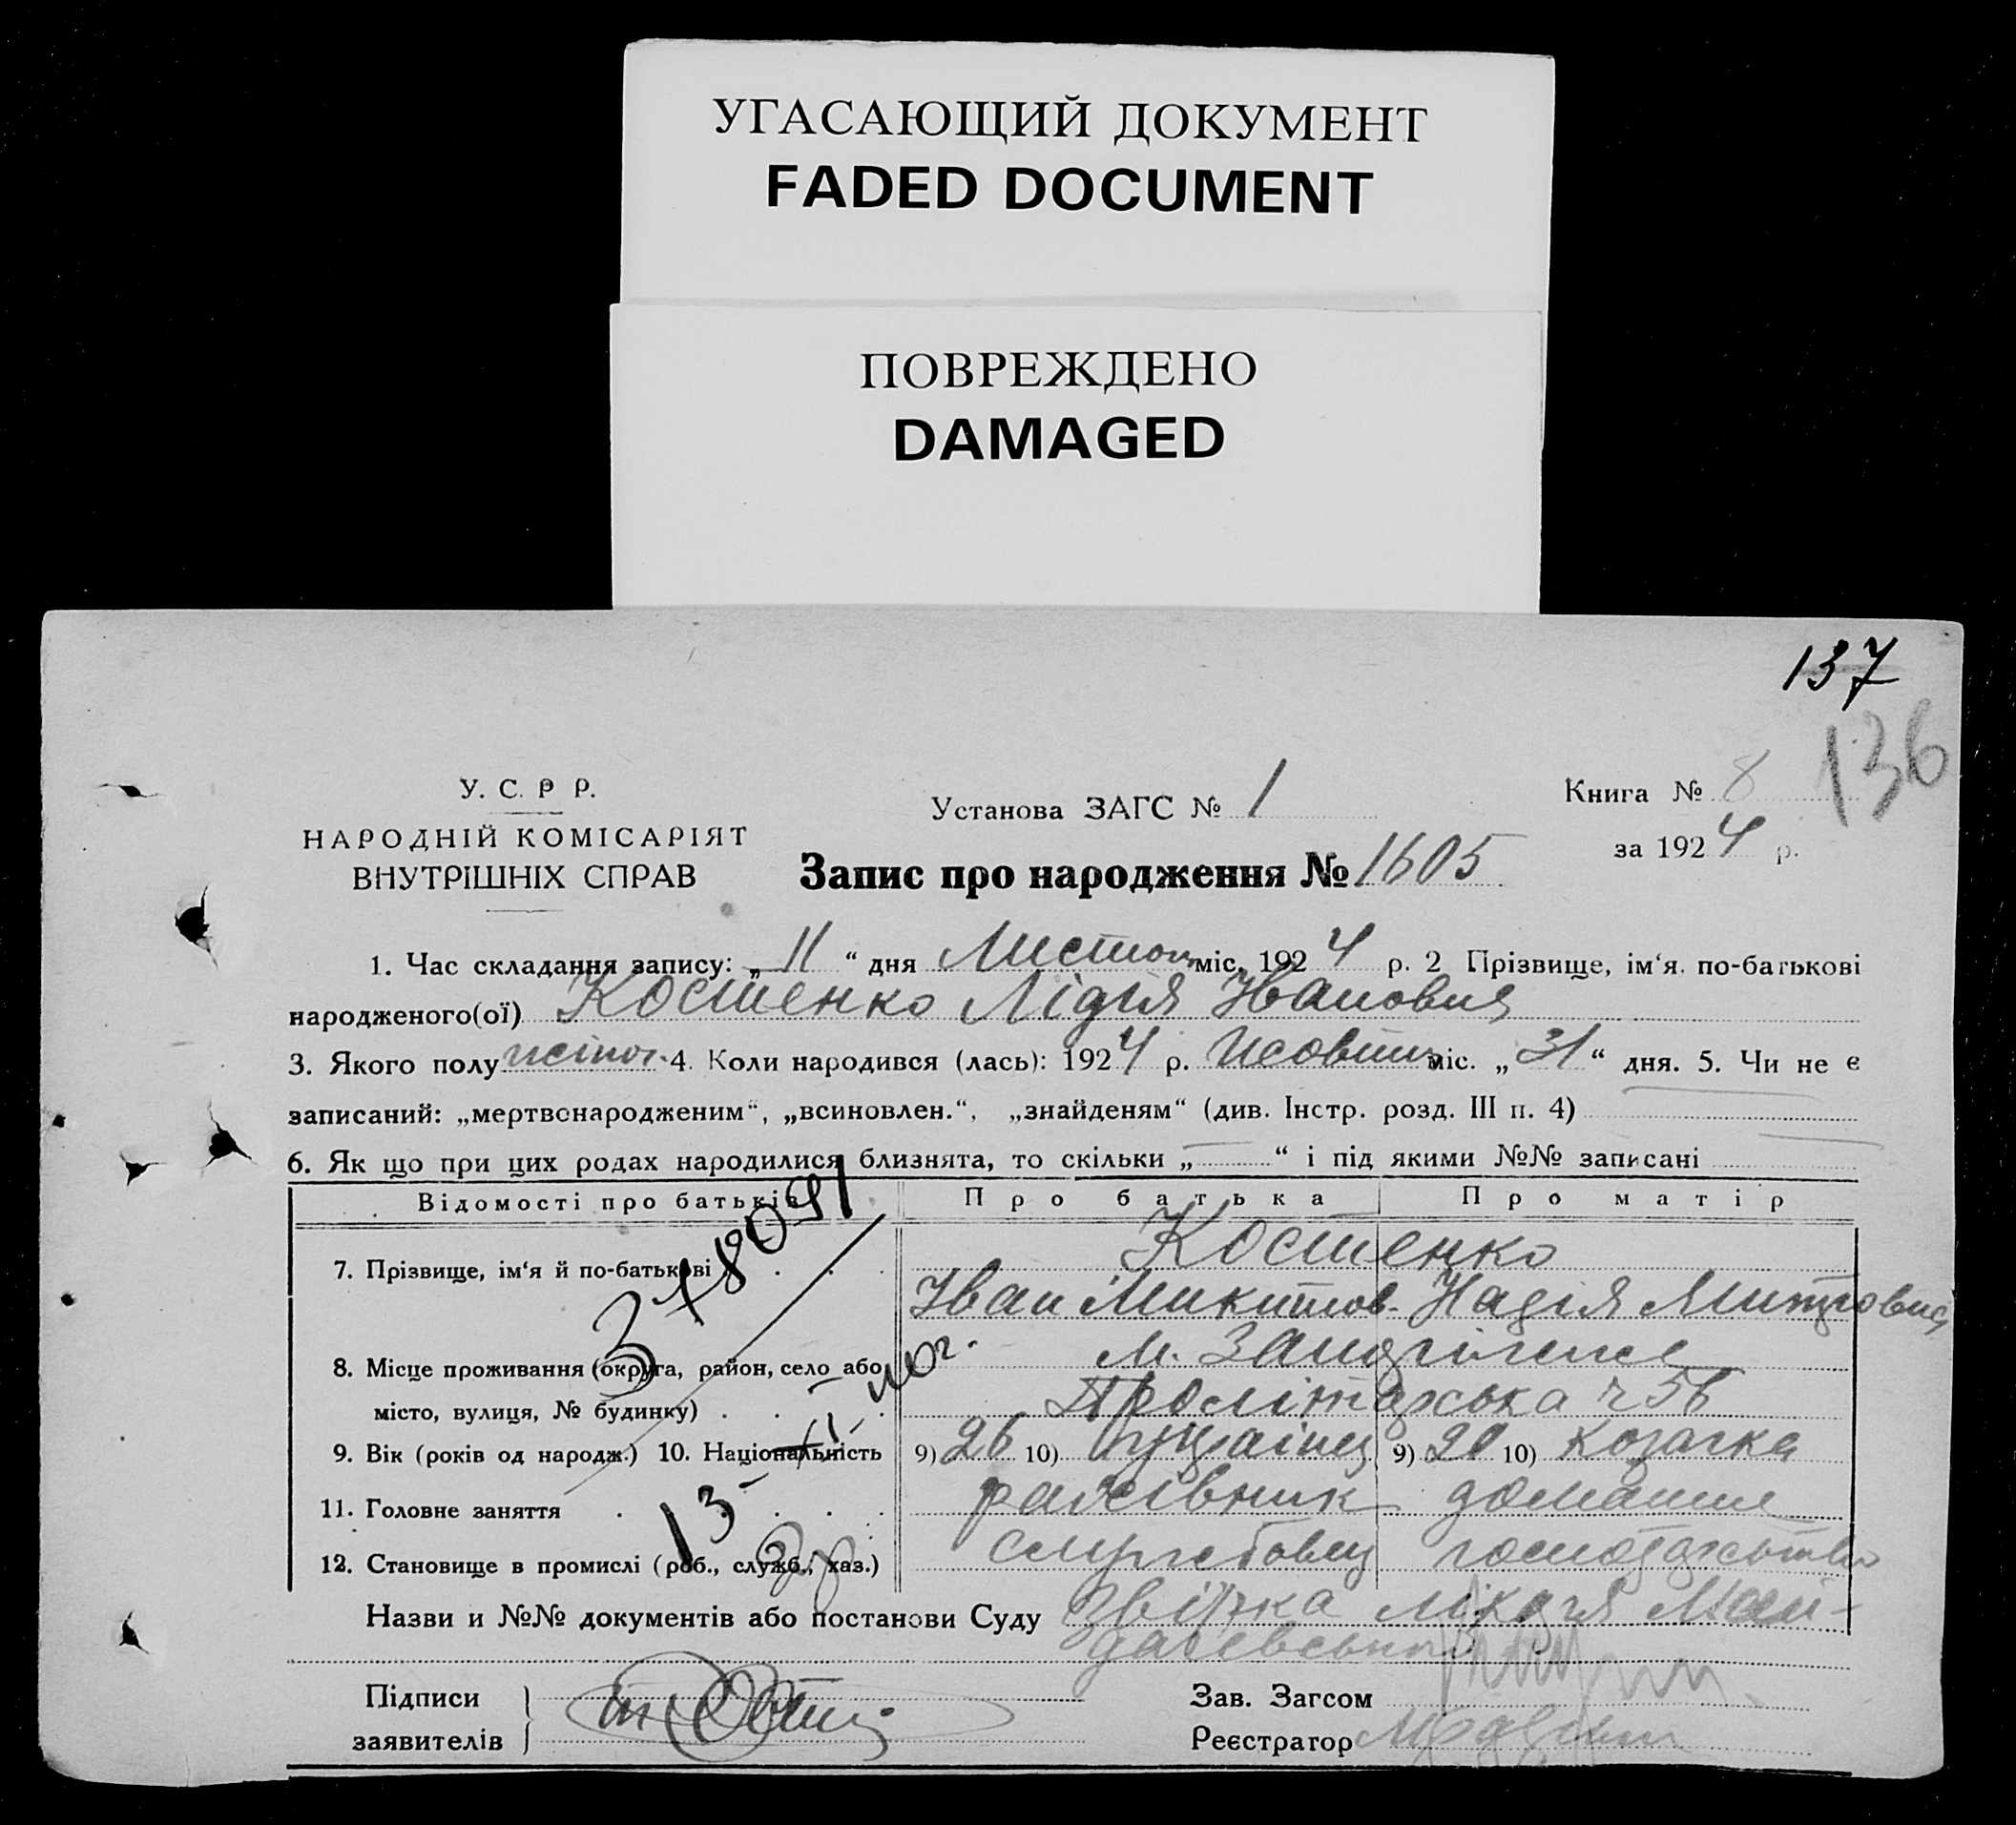 УГАСАЮЩИЙ ДОКУМЕНТ
FADED DOCUMENT
ПОВРЕЖДЕНО
DAMAGED
137
136
У. С. Р Р.
НАРОДНІЙ КОМІСАРІЯТ
ВНУТРІШНІХ СПРАВ
Установа ЗАГС № 1
Книга № 8
за 1924 р.
Запис про народження № 1605
1. Час складання запису: „ 11 “ дня Листоп. міс. 1924 р. 2 Прізвище, ім‘я. по-батькові
народженого(ої) Костенко Лідія Івановна
3. Якого полу жіноч. 4. Коли народився (лась): 1924 р. Жовтня міс. „ 31 “ дня. 5. Чи не є
записаний: „мертвонародженим“, „всиновлен.“, „знайденям“ (див. Інстр. розд. III п. 4)
6. Як що при цих родах народилися близнята, то скільки „ — “ і під якими №№ записані
Відомості про батьків
Про батька
Про матір
7. Прізвище, ім‘я й по-батькові . . .
Костенко
Іван Микитов. Надія
8. Місце проживання (округа, район, село або
місто, вулиця, № будинку) . . . .
м.
Пролітарська ч 56
9. Вік (років од народж.) 10. Національність
9) 26 10) Українец 9) 20 10) Козачка
11. Головне заняття . . . . .
рахівник домашнє
12. Становище в промислі (роб., служб., хаз.)
службовец господарство
Назви и №№ документів або постанови Суду
звістка лікаря
Підписи
заявителів
Зав. Загсом
Реєстратор